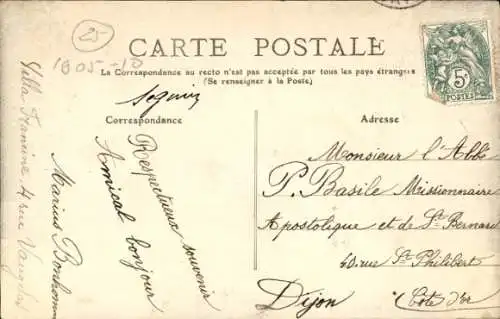 25
1905-10
CARTE POSTALE
La Correspondance au recto n'est pas acceptée par tous les pays étrangers
(Se renseigner à la Poste)
5c
POSTES
Correspondance
Adresse
Respectueux souvenir
Amical bonjour
Marius
Villa Francine 4 rue
Monsieur l'Abbé
P. Basile Missionnaire
Apostolique et de St Bernard
40 rue St Philibert
Dijon
(Côte d'or